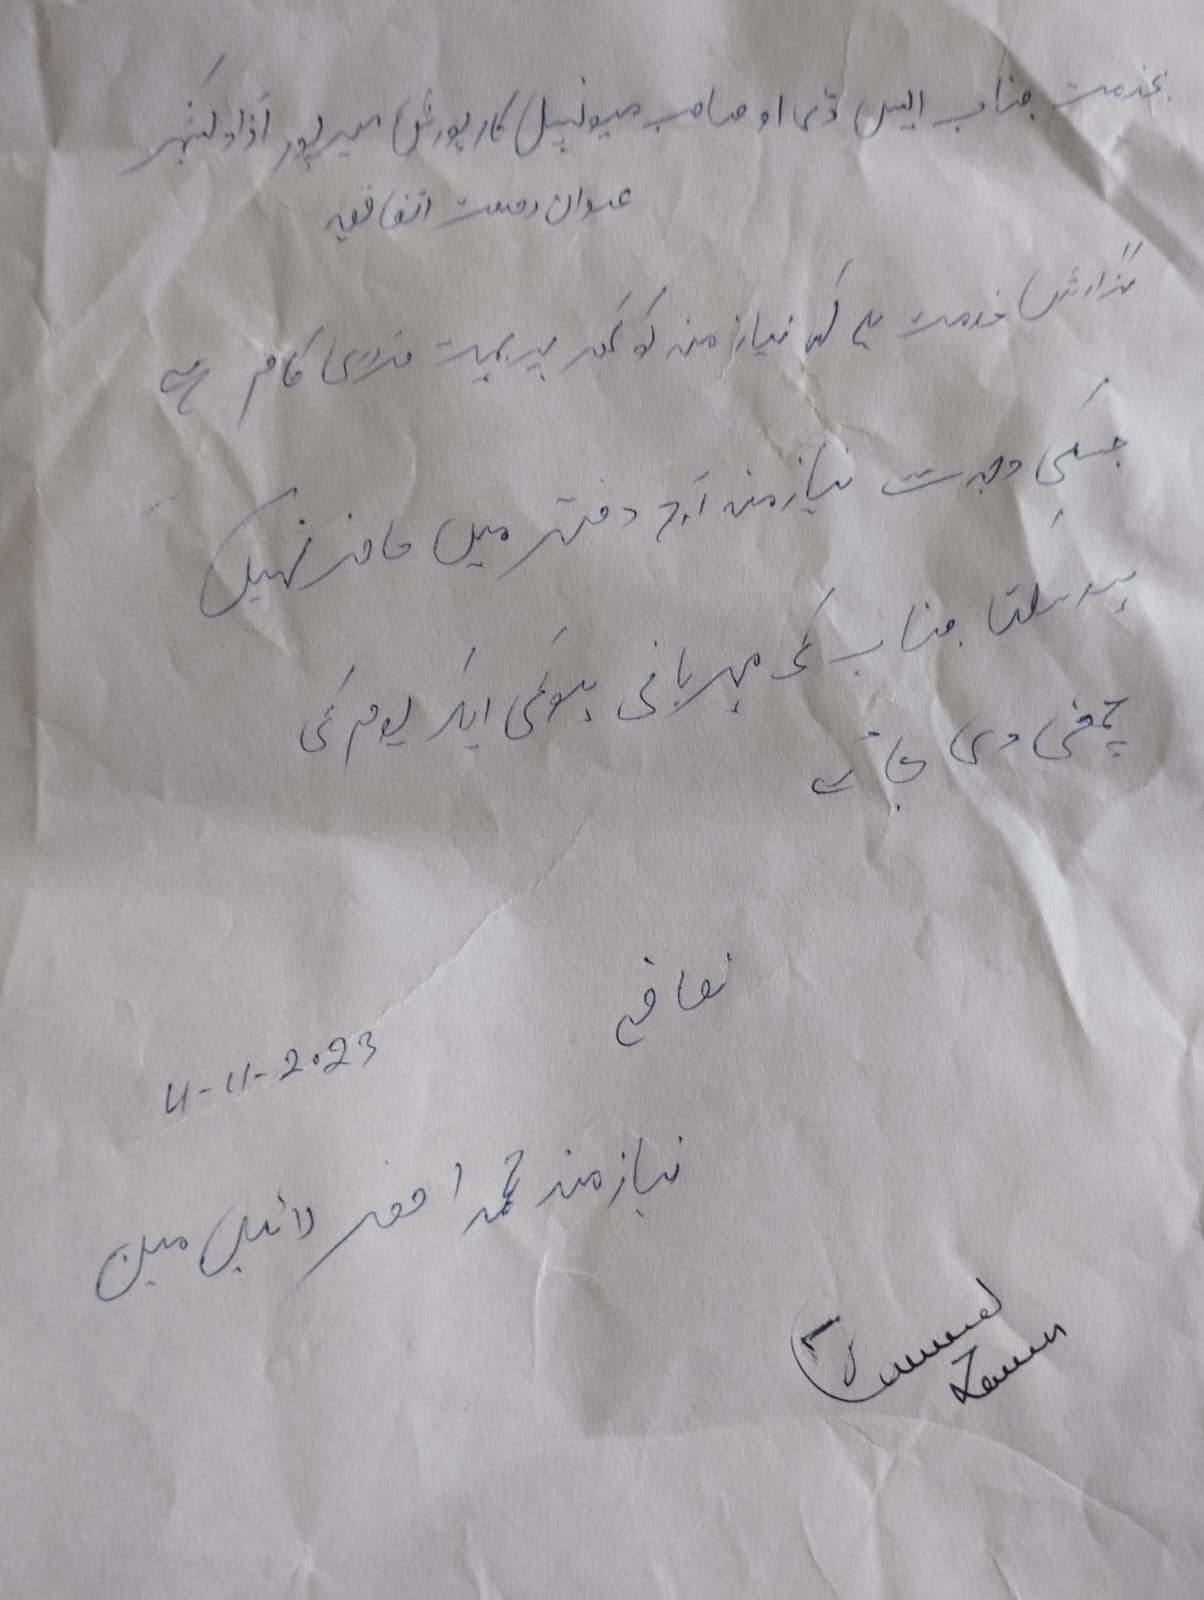 بخدمت جناب ایس ڈی او صاحب میونسپل کارپورشن میرپور آزاد کشمیر
عنوان رخصت اتفاقیہ
گزارش خدمت ہے کہ نیازمند کو گھر پر بہت ضروری کام ہے
جسکی وجہ سے نیازمند آج دفتر میں حاضر نہیں
ہو سکتا جناب کی مہربانی ہوگی ایک یوم کی
چھٹی دی جائے
4-11-2023
نیازمند محمد لائن مین